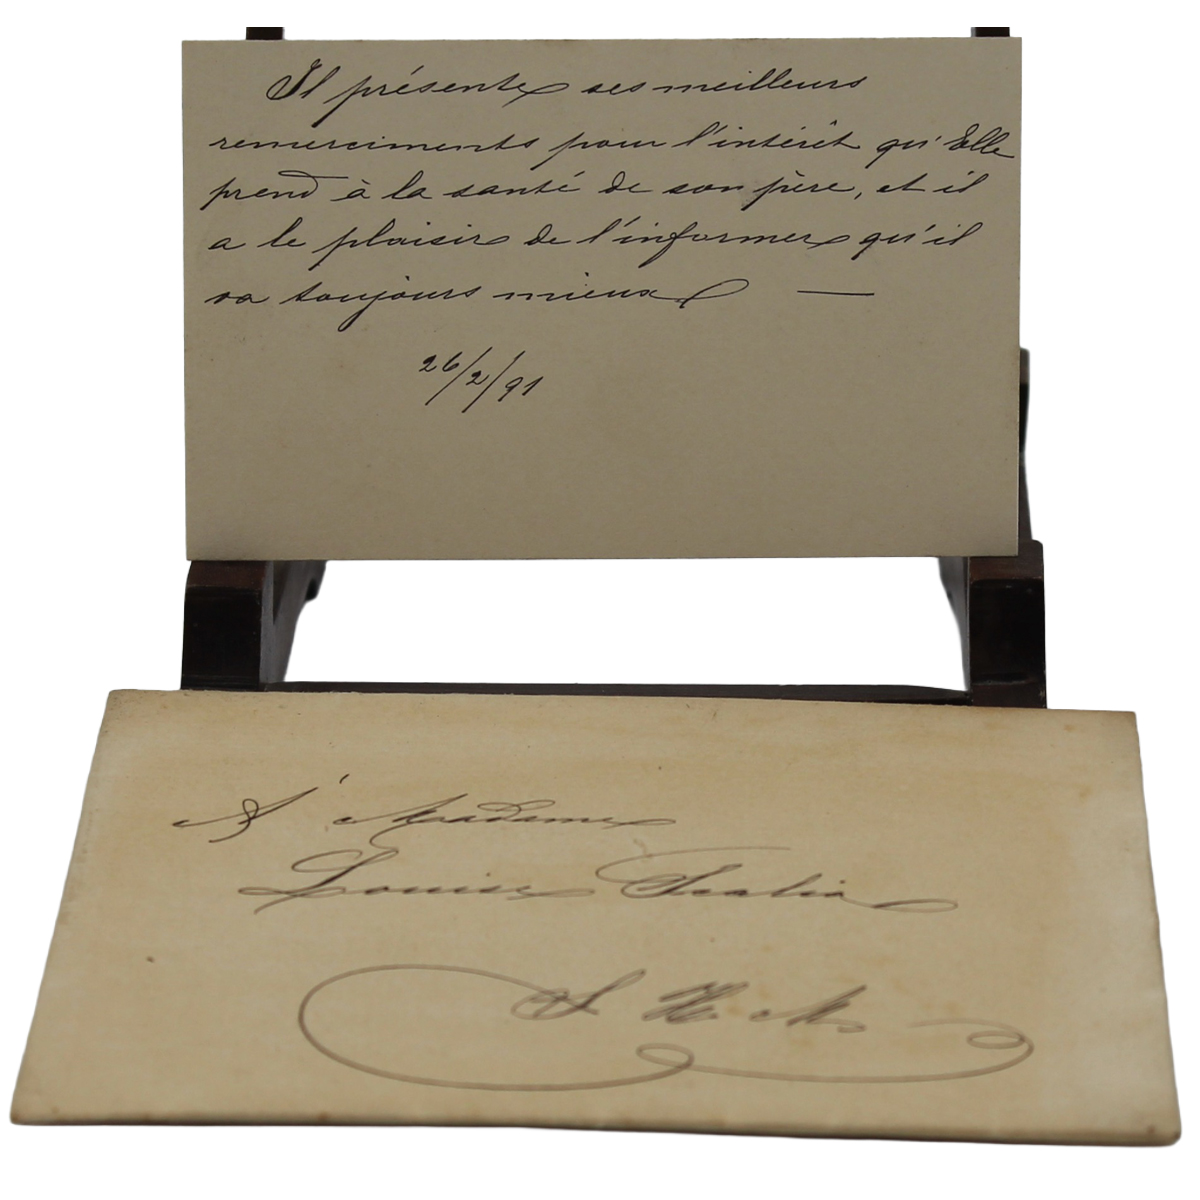 Il présente ses meilleurs
remerciments pour l'intérêt qu'Elle
prend à la santé de son père, et il
a le plaisir de l'informer qu'il
va toujours mieux —
26/2/91
A' Madame
Louise Scalia
S. H. M.